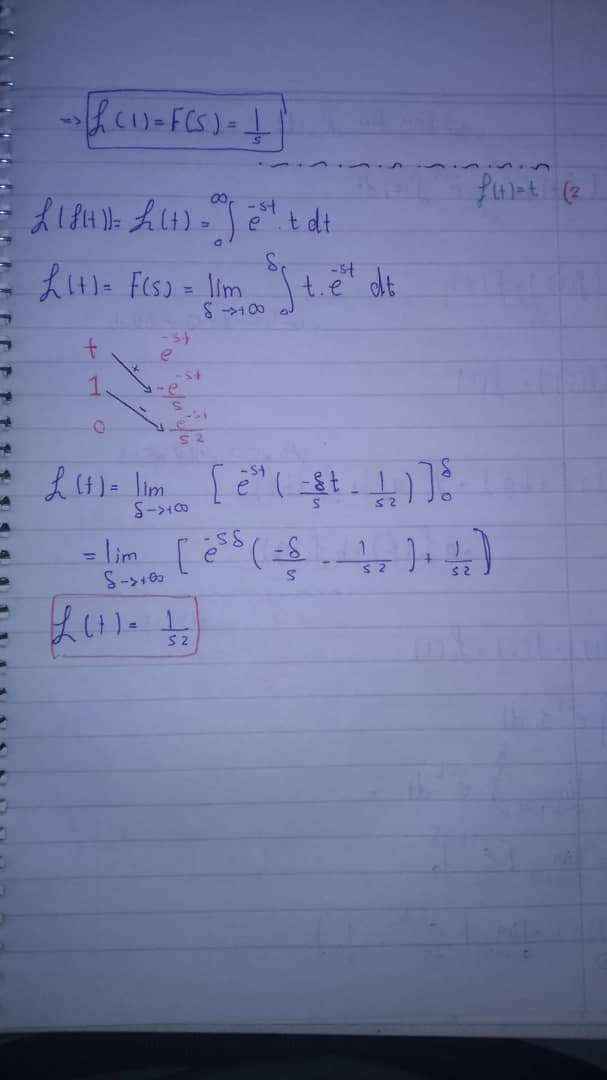 => ℒ(1) = F(s) = 1/s
f(t)=t (2
ℒ(f(t)) = ℒ(t) = ∫₀^∞ e^-st . t dt
ℒ(t) = F(s) = lim δ->+∞ ∫₀^δ t . e^-st dt
t e^-st
+
1 -e^-st/s
-
0 e^-st/s2
ℒ(t) = lim δ->+∞ [ e^-st ( -δt/s - 1/s2 ) ]₀^δ
= lim δ->+∞ [ e^-sδ ( -δ/s - 1/s2 ) + 1/s2 )
ℒ(t) = 1/s2